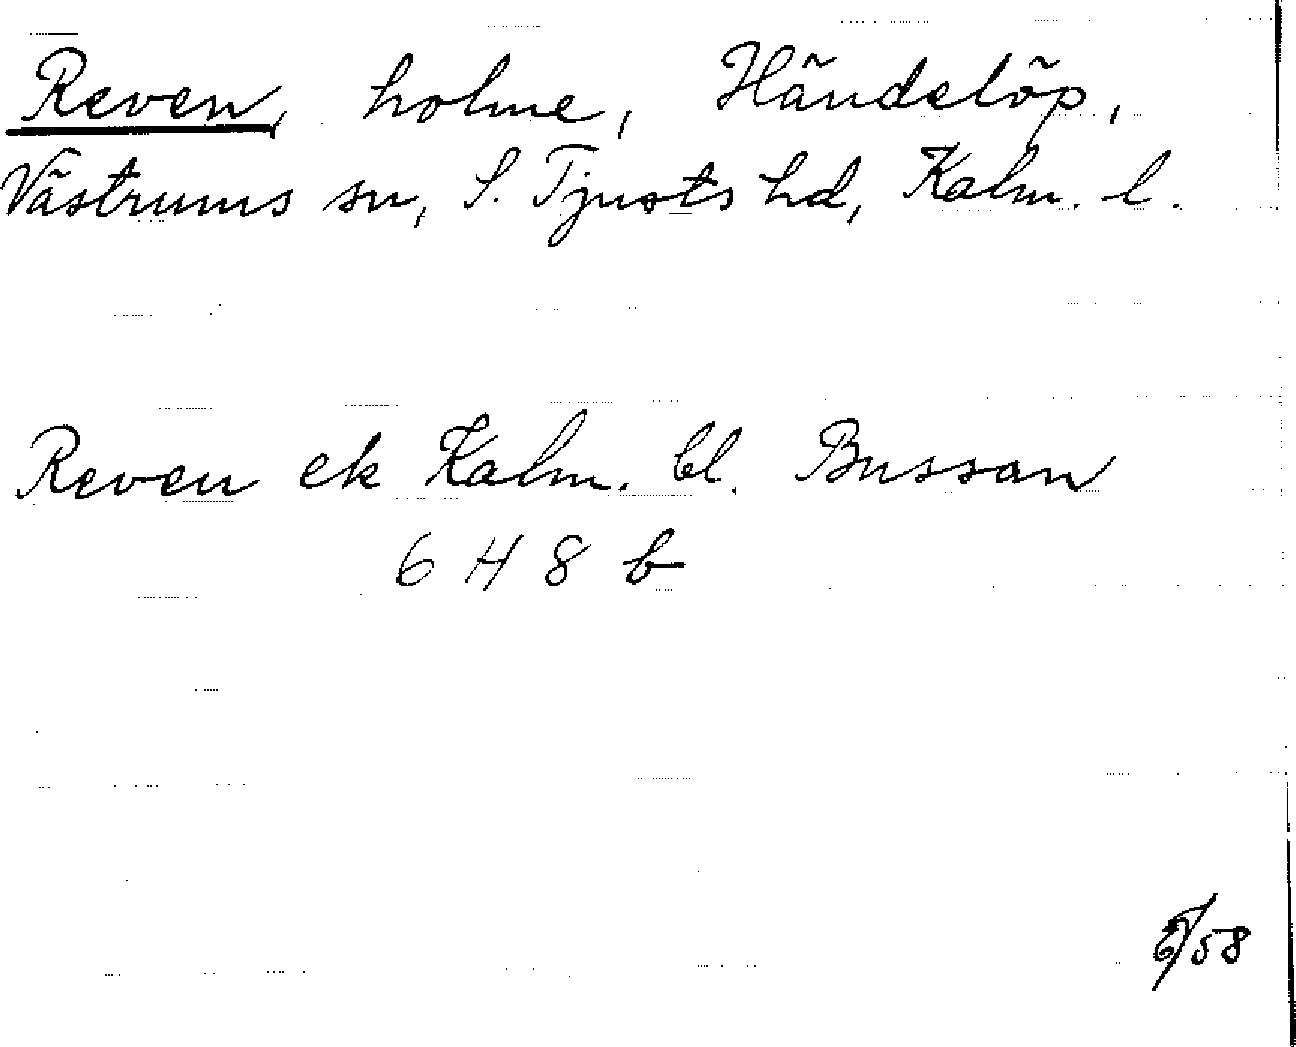 Reven, holme, Händelöp,
Västrums sn, S. Tjusts hd, Kalm. l.
Reven ek Kalm. bl. Bussan
6 H 8 b
/58